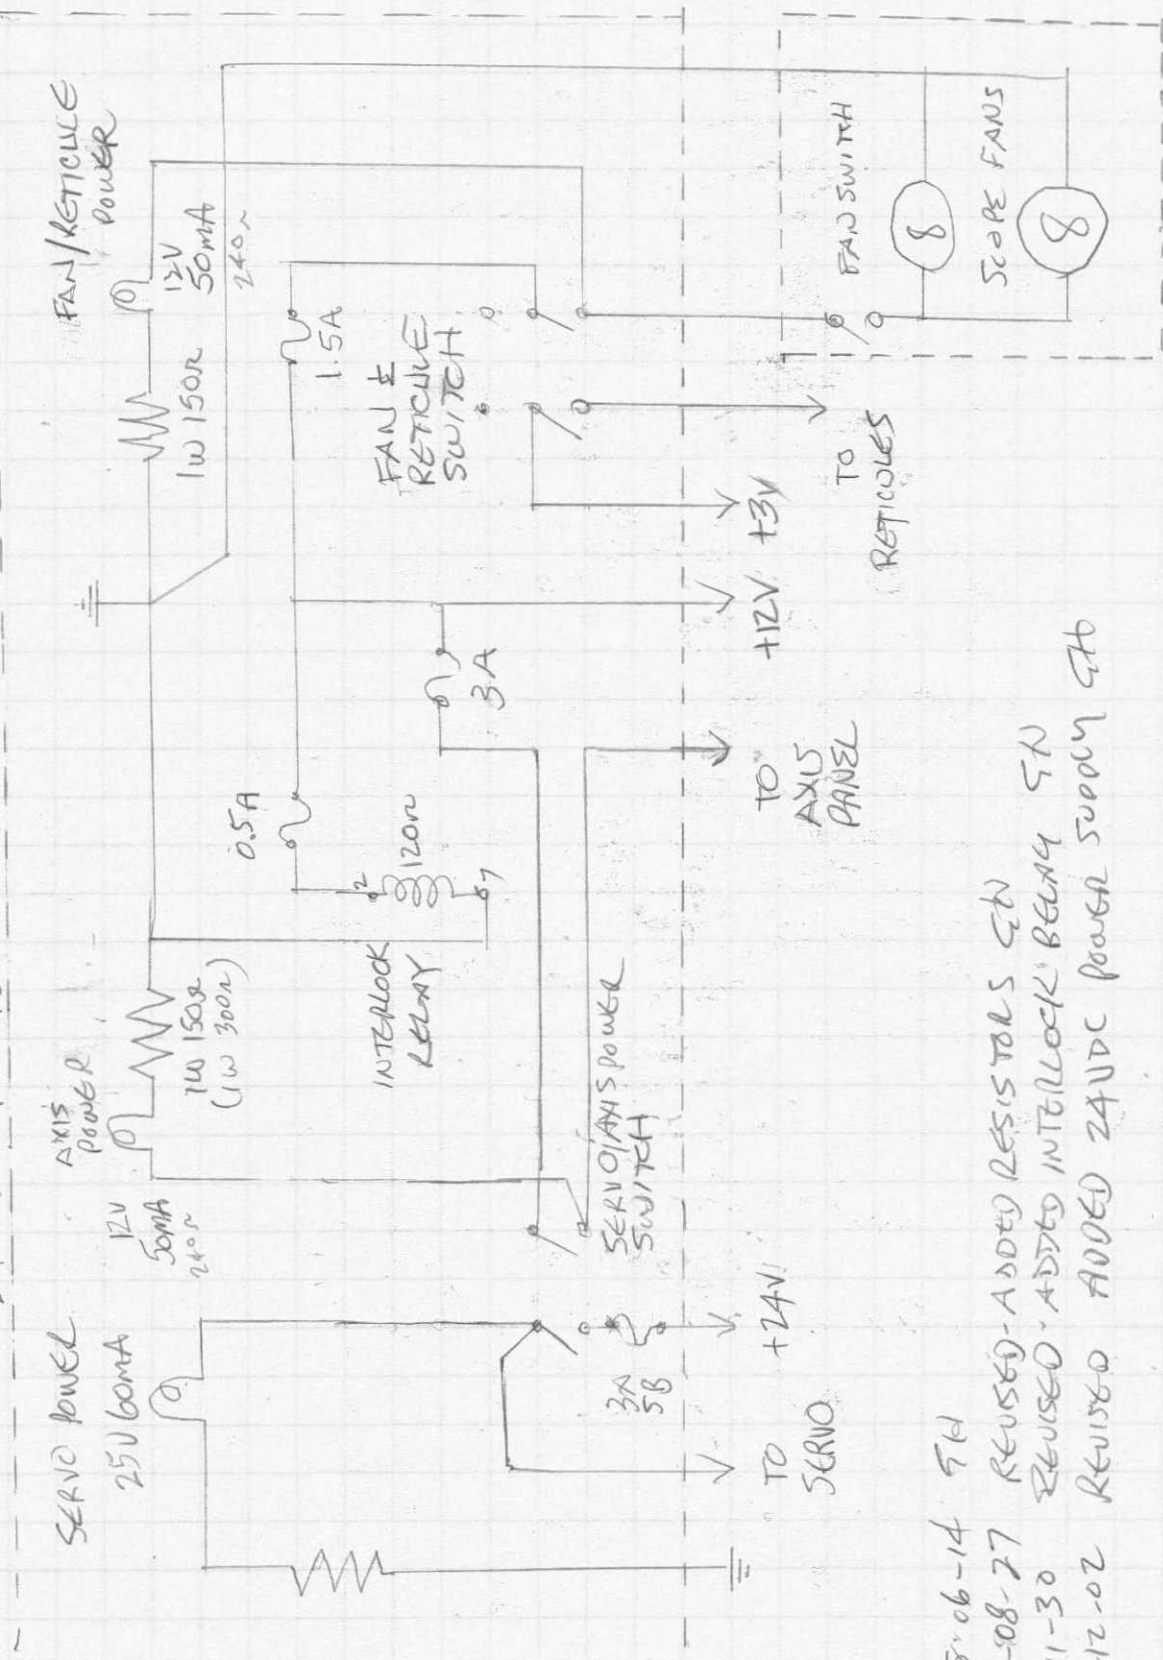 SERVO POWER
25V 60mA
AXIS
POWER
12V
50mA
240Ω
1W 150Ω
(1W 300Ω)
FAN/RETICULE
POWER
12V
50mA
240Ω
1W 150Ω
0.5A
2
120Ω
7
INTERLOCK
RELAY
1.5A
FAN &
RETICULE
SWITCH
3A
SERVO/AXIS POWER
SWITCH
3A
SB
TO
SERVO
+24V
TO
AXIS
PANEL
+12V
+3V
TO
RETICULES
FAN SWITCH
8
SCOPE FANS
8
06-14 GH
-08-27 REVISED-ADDED RESISTORS GH
1-30 REVISED-ADDED INTERLOCK RELAY GH
12-02 REVISED ADDED 24VDC POWER SUPPLY GH